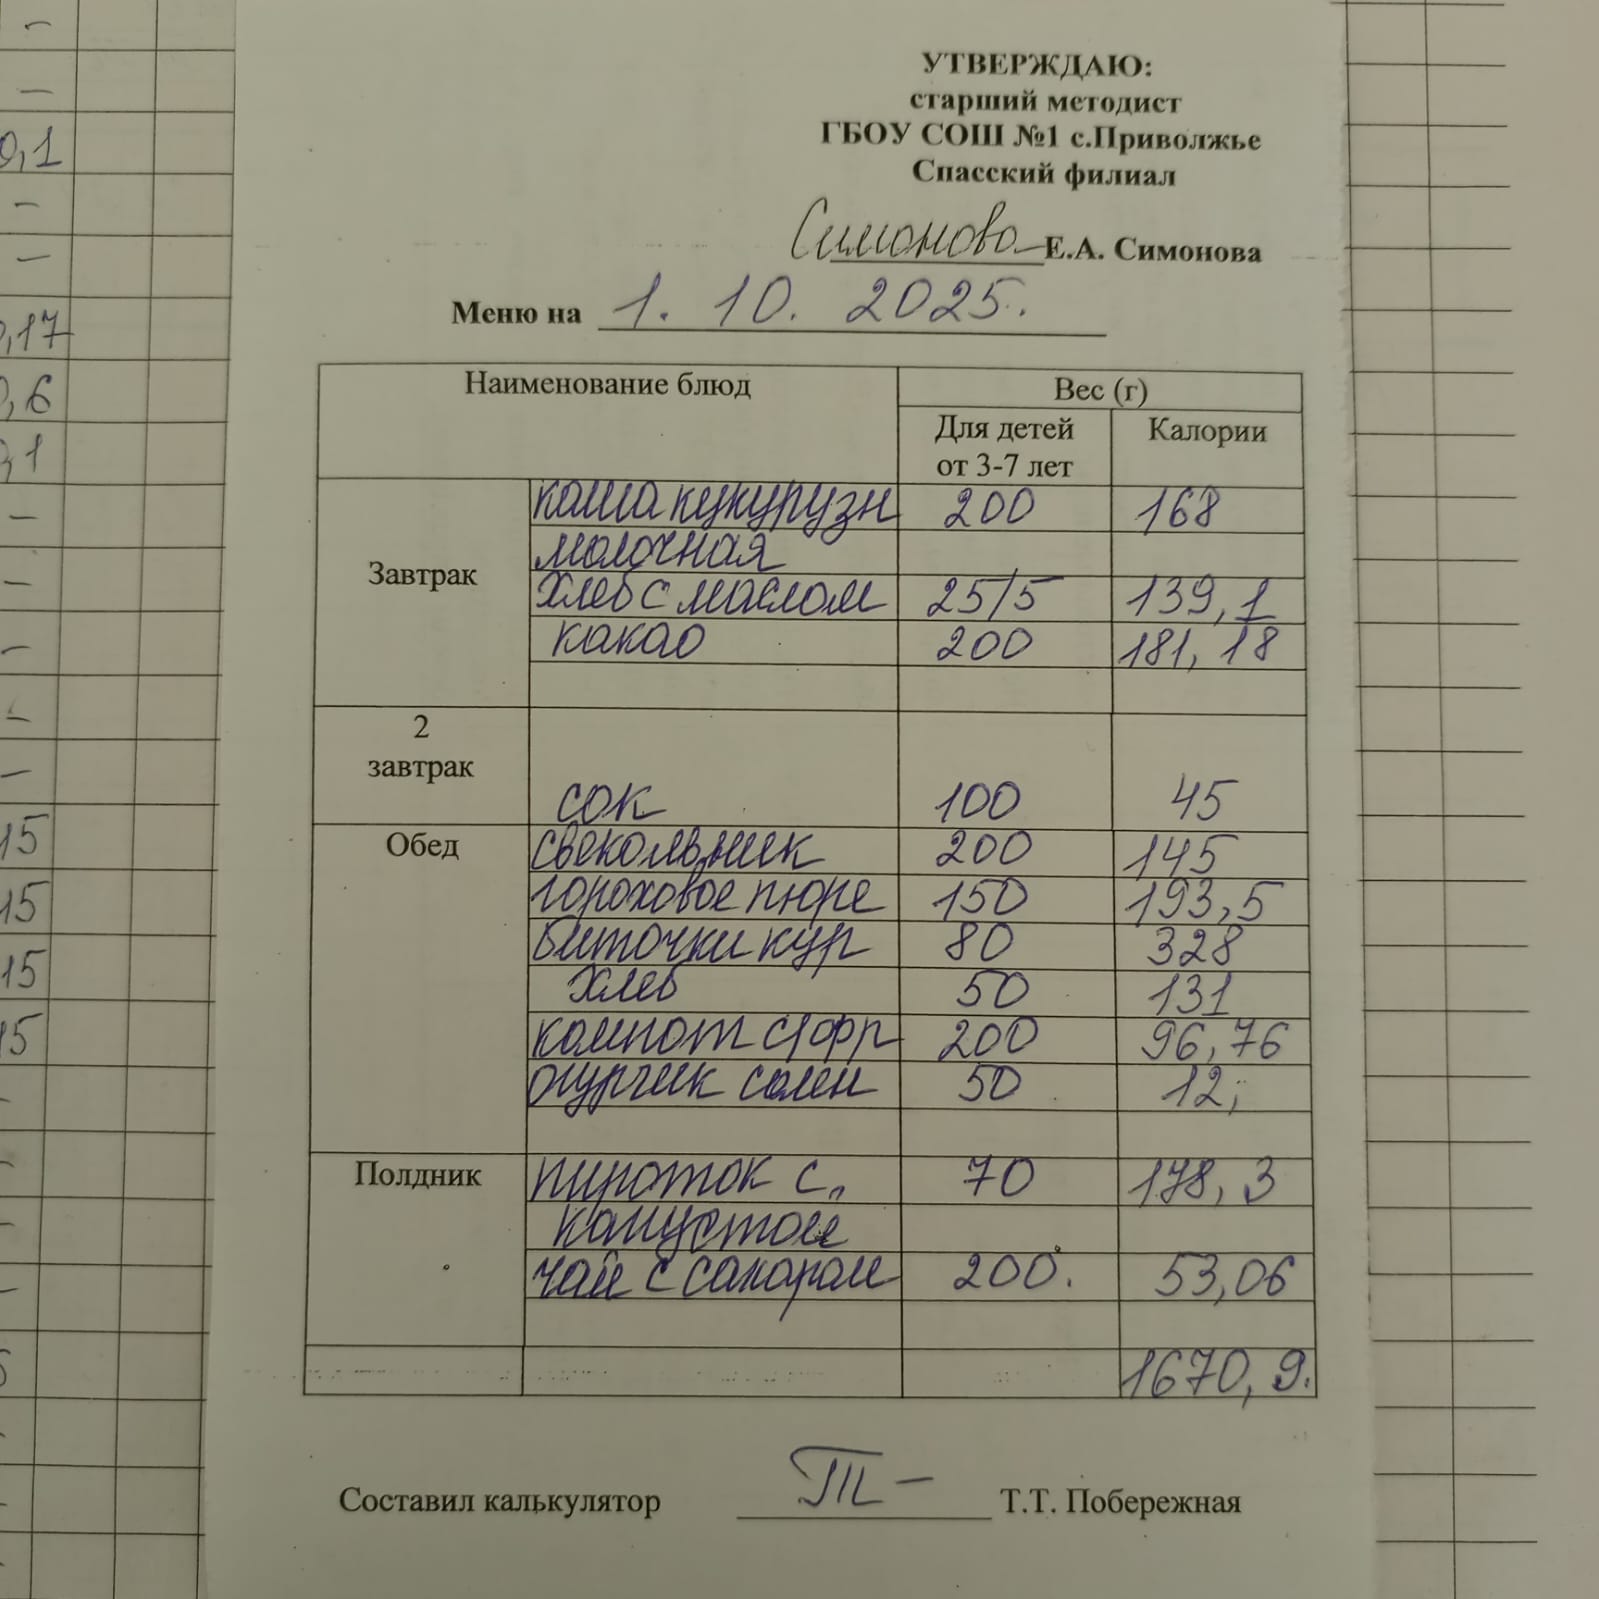 УТВЕРЖДАЮ:
старший методист
ГБОУ СОШ №1 с.Приволжье
Спасский филиал
Симонова Е.А. Симонова
Меню на 1. 10. 2025.
Наименование блюд Вес (г)
Для детей от 3-7 лет Калории
Завтрак
каша кукурузн 200 168
молочная
хлеб с маслом 25/5 139,1
какао 200 181,18
2 завтрак
сок 100 45
Обед
свекольник 200 145
гороховое пюре 150 193,5
биточки кур 80 328
хлеб 50 131
компот с/фр 200 96,76
огурчик солен 50 12;
Полдник
пирожок с 70 178,3
капустой
чай с сахаром 200. 53,06
1670,9.
Составил калькулятор Т.Т. Побережная
0,1
,17
0,6
,1
15
15
15
15